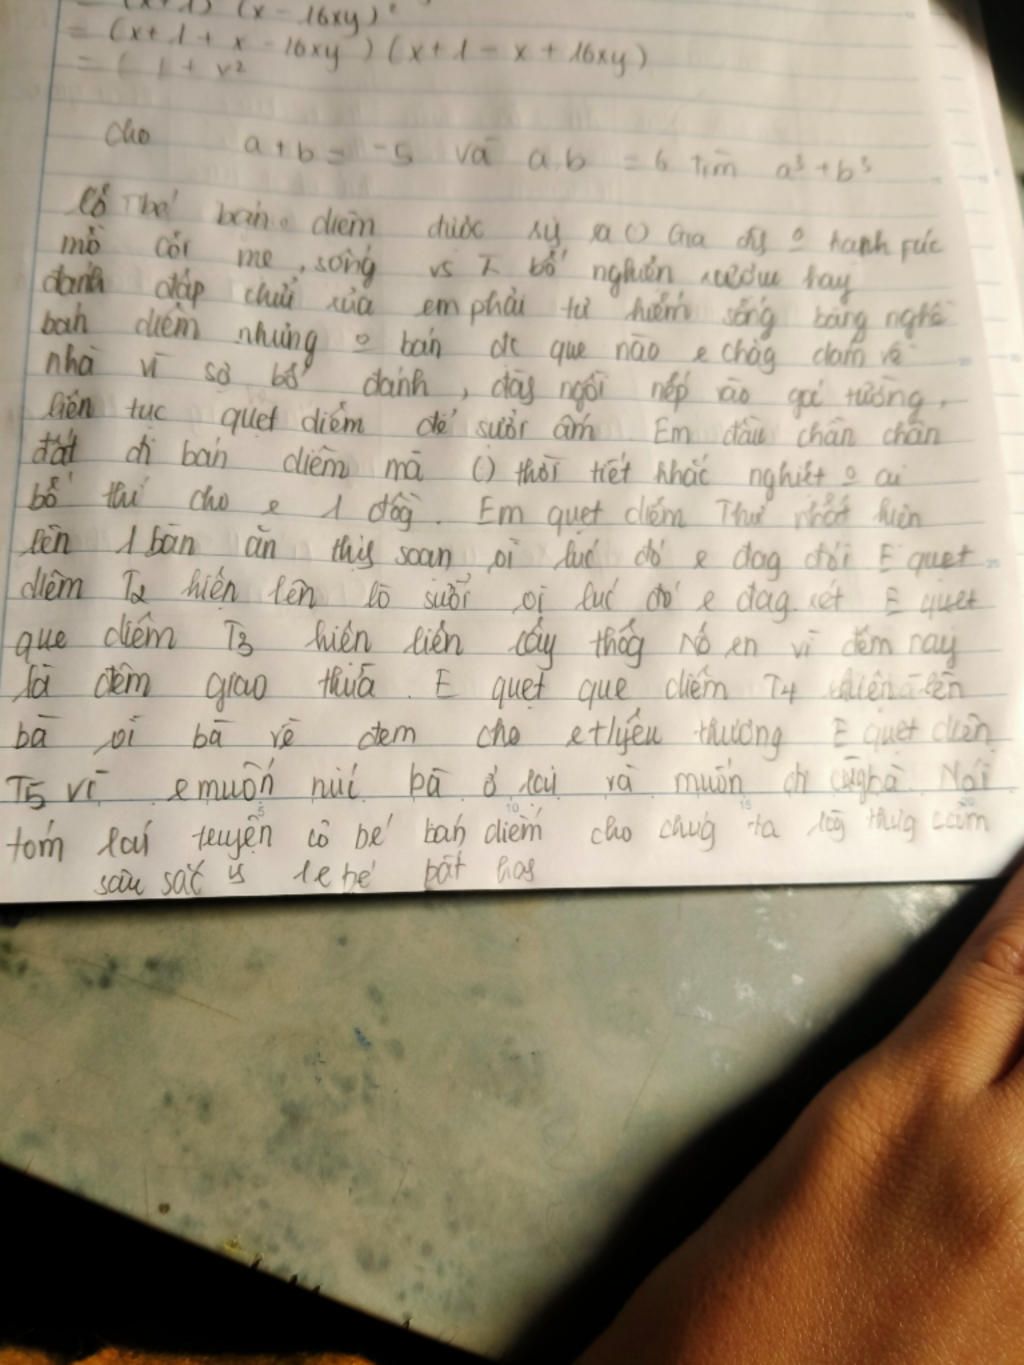 (x - 16xy)²
= (x + 1 + x - 16xy) (x + 1 - x + 16xy)
= ( 1 + x²
Cho a + b = -5 và a.b = 6 Tìm
Cô bé bán diêm được () Gia đìh o hạnh fúc
mồ côi mẹ, sống vs bố nghiện rượu hay
đánh đập chửi rủa em phải tự kiếm sống bằng nghề
bán diêm nhưng o bán đc que nào e chẳg dám về
nhà vì sợ bố đánh, ngồi nép vào góc tường,
liên tục quẹt diêm để sưởi ấm. Em đầu chân chân
đất đi bán diêm mà () thời tiết khắc nghiệt o ai
bố thí cho e 1 đồg. Em quẹt diêm Thứ nhất hiện
lên 1 bàn ăn thịh soạn vì lúc đó e đag đói E quẹt
diêm T2 hiện lên lò sưởi vì lúc đó e đag rét E quẹt
que diêm T3 hiện liên cây thôg Nô en vì đêm nay
là đêm giao thừa. E quẹt que diêm T4 hiện lên
bà vì bà về đem cho e t/yêu thương E quẹt diêm
T5 vì e muốn níu bà ở lại và muốn đi cùg bà Nói
tóm lại truyện cô bé bán diêm cho chúg ta lòg thươg cảm
sâu sắc vs 1 e bé bất